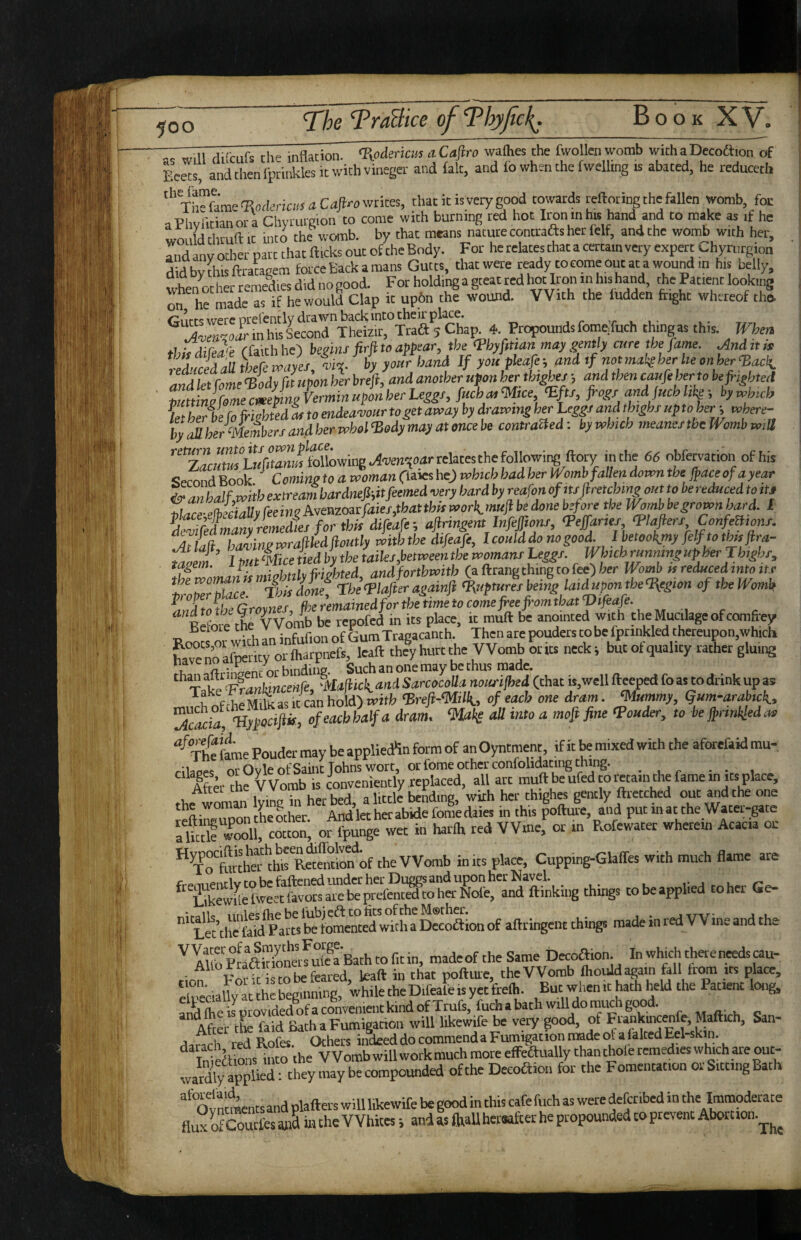 500 The Practice of Phyſick. BOOK XV.
as will diſcuſs the inflation. Rodericus a Caſtro waſhes the ſwollen womb with a Decoction of
Beets, and then ſprinkles it with vineger and ſalt, and ſo when the ſwelling is abated, he reduceth
the ſame.
The ſame Rodericus a Caſtro writes, that it is very good towards reſtoring the fallen womb, for
a Phyſitian or a Chyrurgion to come with burning red hot Iron in his hand and to make as if he
would thruſt it into the womb. by that means nature contracts her ſelf, and the womb with her,
and any other part that ſticks out of the Body. For he relates that a certain very expert Chyrurgion
did by this ſtratagem force Back a mans Gutts, that were ready to come out at a wound in his belly,
when other remedies did no good. For holding a great red hot Iron in his hand, the Patient looking
on, he made as if he would Clap it upon the wound. With the ſudden fright whereof the
Gutts were preſently drawn back into their place.
Avenzoar in his Second Theizir, Tract 5 Chap. 4. Propounds ſome ſuch thing as this. When
this diſeaſe (ſaith he) begins firſt to appear, the Phyſitian may gently cure the ſame. And it is
reduced all theſe wayes, viz. by your hand If you pleaſe; and if not make her lie on her Back,
and let ſome Body ſit upon her breſt, and another upon her thighes; and then cauſe her to be frighted
putting ſome creeping Vermin upon her Leggs, ſuch as Mice, Efts, frogs and ſuch like; by which
let her be ſo frighted as to endeavour to get away by drawing her Leggs and thighs up to her; where-
by all her Members and her whol Body may at once be contracted: by which meanes the Womb will
return unto its own place.
Zacutus Luſitanus following Avenzoar relates the following ſtory in the 66 obſervation of his
Second Book. Coming to a woman (ſaies he) which had her Womb fallen down the ſpace of a year
& an half, with extream hardneß, it ſeemed very hard by reaſon of its ſtretching out to be reduced to its
place, eſpecially ſeeing Avenzoar ſaies, that this work muſt be done before the Womb be grown hard. I
deviſed many remedies for this diſeaſe; aſtringent Inſeſſions, Peſſaries, Plaſters, Confections.
At laſt, having wraſtled ſtoutly with the diſeaſe, I could do no good. I betook my ſelf to this ſtra-
tagem. I put Mice tied by the tailes, between the womans Leggs. Which running up her Thighs,
the woman is mightily frighted, and forthwith (a ſtrang thing to ſee) her Womb is reduced into its
proper place. This done, The Plaſter againſt Ruptures being laid upon the Region of the Womb
and to the Groynes, ſhe remained for the time to come free from that Diſeaſe.
Before the Womb be repoſed in its place, it muſt be anointed with the Mucilage of comfrey
Roots, or with an infuſion of Gum Tragacanth. Then are pouders to be ſprinkled thereupon, which
have no aſperity or ſharpneſs, leaſt they hurt the Womb or its neck; but of quality rather gluing
than aſtringent or binding. Such an one may be thus made.
Take Frankincenſe, Maſtick and Sarcocolla nouriſhed (that is, well ſteeped ſo as to drink up as
much of the Milk as it can hold) with Breſt-Milk, of each one dram. Mummy, Gum-arabick,
Acacia, Hypociſtis, of each half a dram. Make all into a moſt fine Pouder, to be ſprinkled as
aforeſaid.
The ſame Pouder may be applied in form of an Oyntment, if it be mixed with the aforeſaid mu-
cilages, or Oyle of Saint Johns wort, or ſome other conſolidating thing.
After the Womb is conveniently replaced, all art muſt be uſed to retain the ſame in its place,
the woman lying in her bed, a little bending, with her thighes gently ſtretched out and the one
reſting upon the other. And let her abide ſome daies in this poſture, and put in at the Water-gate
a little wooll, cotton, or ſpunge wet in harſh red Wine, or in Roſewater wherein Acacia or
Hypociſtis hath been diſſolved.
To further this Retention of the Womb in its place, Cupping-Glaſſes with much flame are
frequently to be faſtened under her Duggs and upon her Navel.
Likewiſe ſweet ſavors are be preſented to her Noſe, and ſtinking things to be applied to her Ge-
nitalls, unles ſhe be ſubject to fits of the Mother.
Let the ſaid Parts be fomented with a Decoction of aſtringent things made in red Wine and the
Water of a Smyths Forge.
Alſo Practitioners uſe a Bath to ſit in, made of the Same Decoction. In which there needs cau-
tion. For it is to be feared, leaſt in that poſture, the Womb ſhould again fall from its place,
eſpecially at the beginning, while the Diſeaſe is yet freſh. But when it hath held the Patient long,
and ſhe is provided of a convenient kind of Truſs, ſuch a bath will do much good.
After the ſaid Bath a Fumigation will likewiſe be very good, of Frankincenſe, Maſtich, San-
darach, red Roſes. Others indeed do commend a Fumigation made of a ſalted Eel-skin.
Injections into the Womb will work much more effectually than thoſe remedies which are out-
wardly applied: they may be compounded of the Decoction for the Fomentation or Sitting Bath
aforeſaid.
Oyntments and plaſters will likewiſe be good in this caſe ſuch as were deſcribed in the Immoderate
flux of Courſes and in the Whites; and as ſhall hereafter he propounded to prevent Abortion.
The